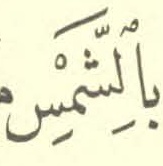 بِٱلشَّمَيْسِ